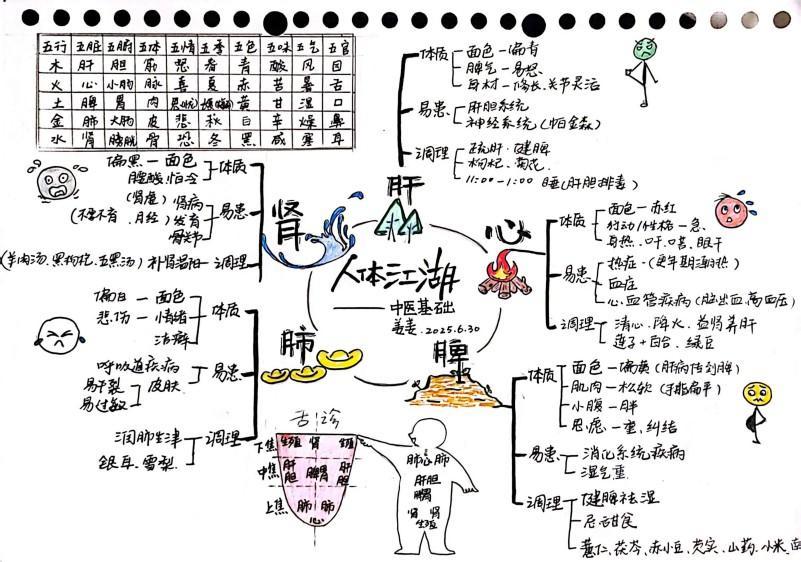 五行 五脏 五腑 五体 五情 五季 五色 五味 五气 五官
木 肝 胆 筋 怒 春 青 酸 风 目
火 心 小肠 脉 喜 夏 赤 苦 暑 舌
土 脾 胃 肉 思(忧) 黄 甘 湿 口
金 肺 大肠 皮 悲 秋 白 辛 燥 鼻
水 肾 膀胱 骨 恐 冬 黑 咸 寒 耳
人体江湖
中医基础
姜姜.2025.6.30
肝
体质
面色-偏青
脾气-易怒
身材-修长、关节灵活
易患
肝胆系统
神经系统(帕金森)
调理
疏肝、健脾
枸杞、菊花
11:00-1:00 睡(肝胆排毒)
心
体质
面色-赤红
行动/性格-急、
身热、口干、口苦、眼干
易患
热症-(更年期潮热)
血症
心血管疾病(脑出血、高血压)
调理
清心、降火、益肾养肝
莲子+百合、绿豆
脾
体质
面色-偏黄(肝病传到脾)
肌肉-松软
小腹-胖
思虑-重、纠结
易患
消化系统疾病
湿气重
调理
健脾祛湿
忌甜食
薏仁、茯苓、赤小豆、芡实、山药、小米、南
肺
偏白-面色
悲伤-情绪
洁癖
体质
呼吸道疾病
易干裂
易过敏
皮肤
易患
润肺生津
银耳、雪梨
调理
肾
偏黑-面色
腰酸、怕冷
体质
(肾虚)肾病
(不孕不育、月经)发育
骨关节
易患
(羊肉汤、黑枸杞、五黑汤)补肾温阳-调理
舌诊
下焦 生殖 肾 生殖
中焦 肝胆 脾胃 肝胆
上焦 肺 肺
心
肺心肺
肝胆
脾胃
肾 肾
生殖